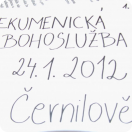 1.
EKUMENICKÁ
BOHOSLUŽBA
24.1.2012
Černilově